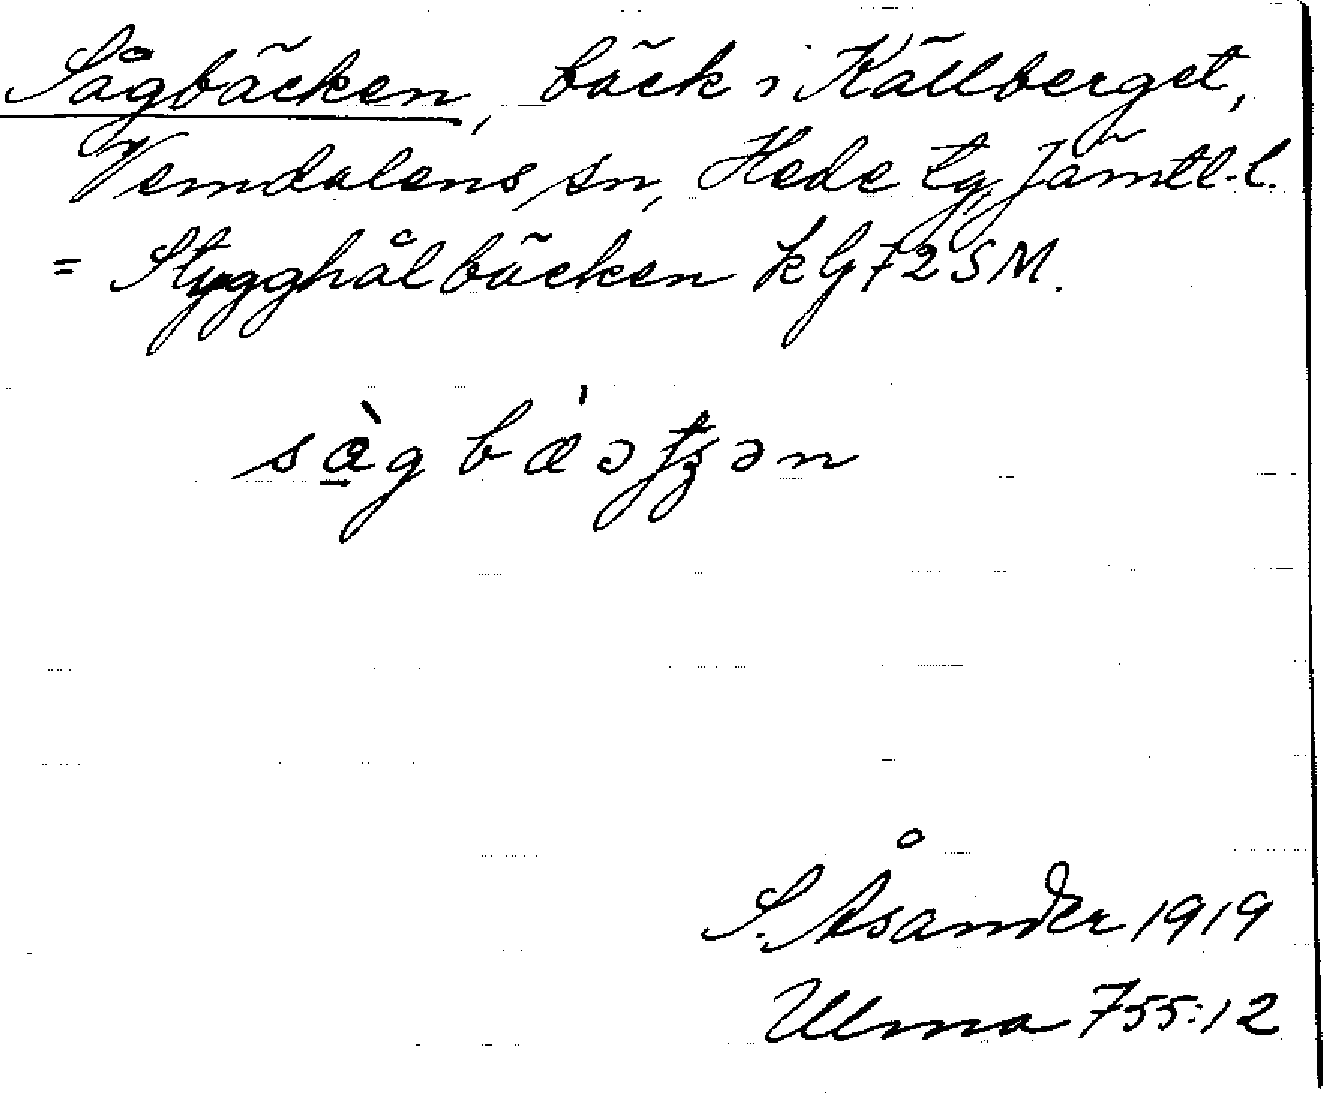 Sågbäcken, bäck i Källberget,
Vemdalens sn, Hede tg, Jämtl. l.
= Stygghålbäcken kG72SM.
sàg bæ'ətʒən
S. Åsander 1919
Ulma 755:12